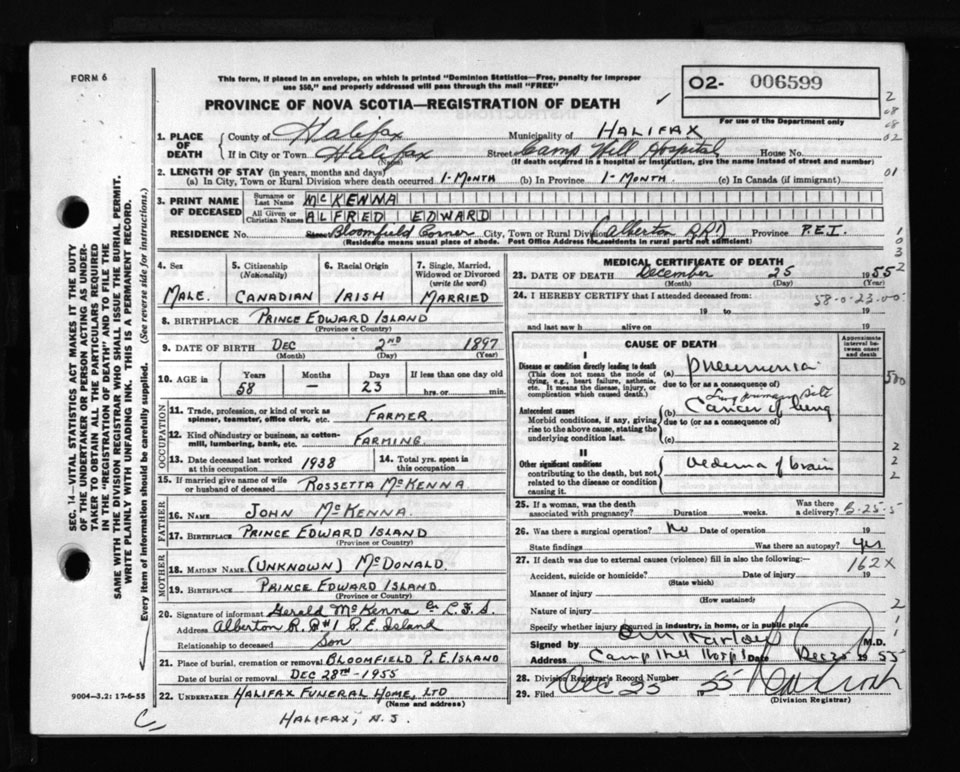 FORM 6
This form, if placed in an envelope, on which is printed "Dominion Statistics—Free, penalty for improper
use $50," and properly addressed will pass through the mail "FREE"
02- 006599
PROVINCE OF NOVA SCOTIA—REGISTRATION OF DEATH ✓
For use of the Department only
2
1. PLACE OF DEATH { County of Halifax Municipality of HALIFAX
If in City or Town Halifax (Name) Street Camp Hill Hospital House No.
(If death occurred in a hospital or institution, give the name instead of street and number)
02
2. LENGTH OF STAY (in years, months and days)
(a) In City, Town or Rural Division where death occurred 1-MONTH (b) In Province 1-MONTH (c) In Canada (if immigrant)
01
3. PRINT NAME OF DECEASED { Surname or Last Name McKENNA
All Given or Christian Names ALFRED EDWARD
RESIDENCE No. Street Bloomfield Corner City, Town or Rural Division Alberton RR1) Province P.E.I.
(Residence means usual place of abode. Post Office Address for residents in rural parts not sufficient)
1
0
3
2
4. Sex
MALE
5. Citizenship (Nationality)
CANADIAN
6. Racial Origin
IRISH
7. Single, Married, Widowed or Divorced (write the word)
MARRIED
8. BIRTHPLACE PRINCE EDWARD ISLAND
(Province or Country)
9. DATE OF BIRTH DEC 2ND 1897
(Month) (Day) (Year)
10. AGE in Years Months Days If less than one day old
58 — 23 hrs. or min.
OCCUPATION
11. Trade, profession, or kind of work as
spinner, teamster, office clerk, etc. FARMER
12. Kind of industry or business, as cotton-
mill, lumbering, bank, etc. FARMING
13. Date deceased last worked
at this occupation 1938
14. Total yrs. spent in
this occupation
15. If married give name of wife
or husband of deceased ROSSETTA McKENNA
FATHER
16. NAME JOHN McKENNA
17. BIRTHPLACE PRINCE EDWARD ISLAND
(Province or Country)
MOTHER
18. MAIDEN NAME (UNKNOWN) McDONALD
19. BIRTHPLACE PRINCE EDWARD ISLAND
(Province or Country)
20. Signature of informant Gerald McKenna
Address Alberton R.R#1 P.E. Island
Relationship to deceased Son
21. Place of burial, cremation or removal BLOOMFIELD P.E. ISLAND
Date of burial or removal DEC 28TH-1955
22. UNDERTAKER HALIFAX FUNERAL HOME, LTD
(Name and address)
HALIFAX, N.S.
MEDICAL CERTIFICATE OF DEATH
23. DATE OF DEATH December 25 1955
(Month) (Day) (Year)
24. I HEREBY CERTIFY that I attended deceased from:
58-0-23-00
19 to 19
and last saw h alive on 19
CAUSE OF DEATH
Approximate interval between onset and death
I
Disease or condition directly leading to death
(This does not mean the mode of dying, e.g., heart failure, asthenia, etc. It means the disease, injury, or complication which caused death.)
(a) Pneumonia
due to (or as a consequence of)
Antecedent causes
Morbid conditions, if any, giving rise to the above cause, stating the underlying condition last.
(b) Cancer of lung
due to (or as a consequence of)
(c)
II
Other significant conditions
contributing to the death, but not related to the disease or condition causing it.
Oedema of brain
2
2
2
25. If a woman, was the death
associated with pregnancy? Duration weeks. Was there a delivery?
26. Was there a surgical operation? No Date of operation 19
State findings Was there an autopsy? Yes
27. If death was due to external causes (violence) fill in also the following:—
162X
Accident, suicide or homicide? (State which) Date of injury 19
Manner of injury
(How sustained)
Nature of injury
2
Specify whether injury occurred in industry, in home, or in public place
Signed by M.D.
Address Camp Hill Hospl Date Dec 25 1955
28. Division Registrar's Record Number
29. Filed Dec 25 1955
(Division Registrar)
SEC. 14—VITAL STATISTICS ACT MAKES IT THE DUTY
OF THE UNDERTAKER OR PERSON ACTING AS UNDER-
TAKER TO OBTAIN ALL THE PARTICULARS REQUIRED
IN THE "REGISTRATION OF DEATH" AND TO FILE THE
SAME WITH THE DIVISION REGISTRAR WHO SHALL ISSUE THE BURIAL PERMIT.
WRITE PLAINLY WITH UNFADING INK. THIS IS A PERMANENT RECORD.
Every item of information should be carefully supplied. (See reverse side for instructions.)
9004—3.2: 17-6-55